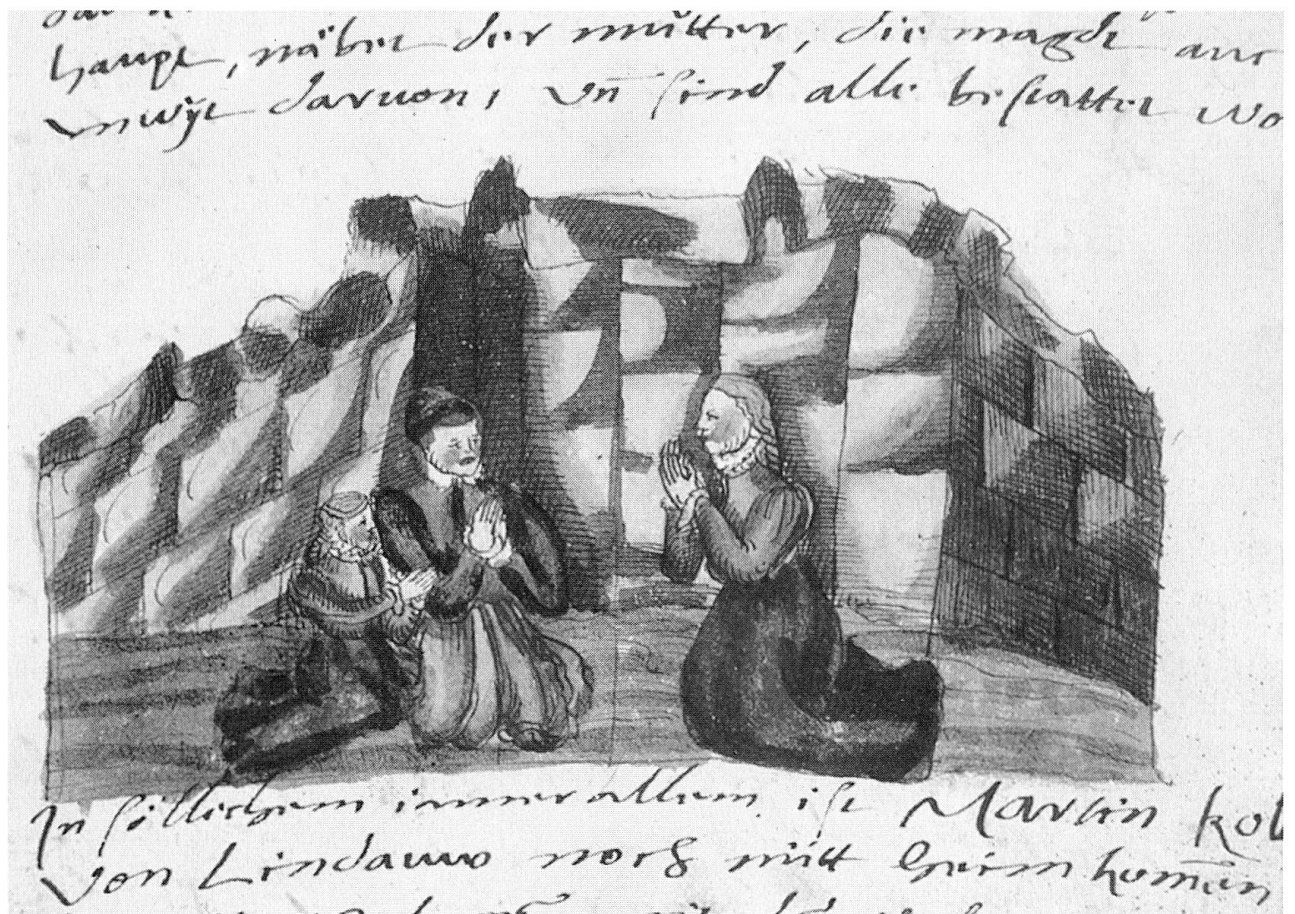 haupt, näbet der můtter, die magdt auc
vnwÿt daruon, vn̄ sind alle bestattet wo
In söllichem immer allem ist Martin kol
von Lindauw noch nütt heim komen